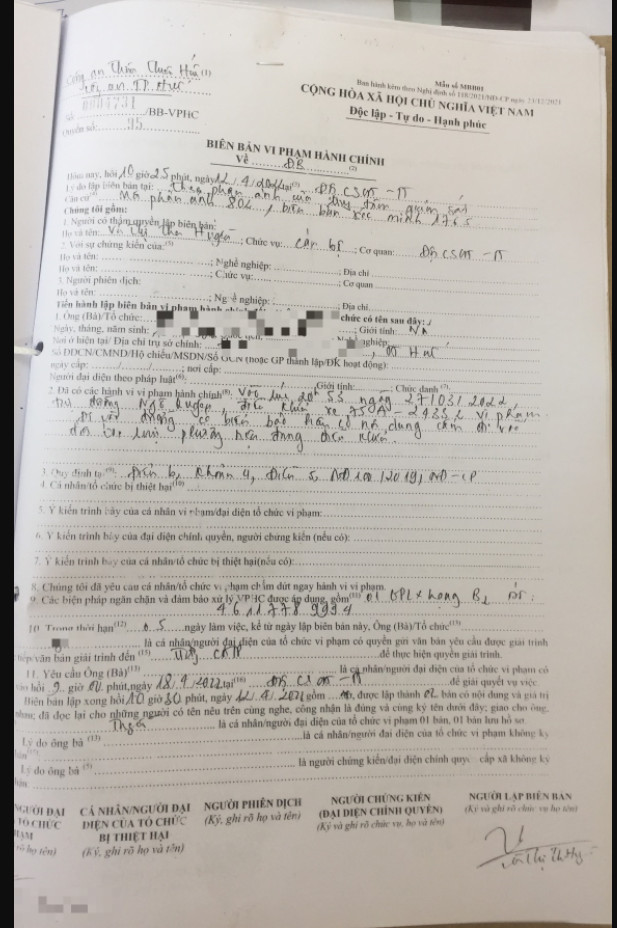 Công an Thừa Thiên Huế (1)
Công an TP. Huế
Số: 0004731 /BB-VPHC
Quyển số: 95
Mẫu số MBB01
Ban hành kèm theo Nghị định số 118/2021/NĐ-CP ngày 23/12/2021
CỘNG HÒA XÃ HỘI CHỦ NGHĨA VIỆT NAM
Độc lập - Tự do - Hạnh phúc
BIÊN BẢN VI PHẠM HÀNH CHÍNH
Về ĐB (2)
Hôm nay, hồi 10 giờ 25 phút, ngày 12/4/2022 tại (3) Đội CSGT - TT
Lý do lập biên bản tại: theo phản ánh của trung tâm giám sát
Căn cứ (4) Mã phản ánh 802, biên bản xác minh 1765
Chúng tôi gồm:
1. Người có thẩm quyền lập biên bản:
Họ và tên: Thị ; Chức vụ: Cán bộ ; Cơ quan: Đội CSGT - TT
2. Với sự chứng kiến của: (5)
Họ và tên: ; Nghề nghiệp: ; Địa chỉ
Họ và tên: ; Chức vụ: ; Cơ quan
3. Người phiên dịch:
Họ và tên: ; Nghề nghiệp: ; Địa chỉ
Tiến hành lập biên bản vi phạm hành chính chức có tên sau đây:
1. Ông (Bà)/Tổ chức:
Ngày, tháng, năm sinh: ; Giới tính: Nữ
Nơi ở hiện tại/ Địa chỉ trụ sở chính: nghiệp: , Huế
Số ĐDCN/CMND/Hộ chiếu/MSDN/Số GCN (hoặc GP thành lập/ĐK hoạt động):
ngày cấp: / / ; nơi cấp:
Người đại diện theo pháp luật (6): Giới tính: Chức danh (7):
2. Đã có các hành vi vi phạm hành chính (8): Vào lúc 20h 53 ngày 27/03/2022,
tại đường Ngô Quyền, điều khiển xe 75A - 2433 vi phạm
đi vào đường có biển báo hiệu có nội dung cấm đi vào
đối với loại phương tiện đang điều khiển.
3. Quy định tại (9) Điểm b, Khoản 4, Điều 5, NĐ 100/2019/NĐ-CP
4. Cá nhân/tổ chức bị thiệt hại (10)
5. Ý kiến trình bày của cá nhân vi phạm/đại diện tổ chức vi phạm:
6. Ý kiến trình bày của đại diện chính quyền, người chứng kiến (nếu có):
7. Ý kiến trình bày của cá nhân/tổ chức bị thiệt hại(nếu có):
8. Chúng tôi đã yêu cầu cá nhân/tổ chức vi phạm chấm dứt ngay hành vi vi phạm.
9. Các biện pháp ngăn chặn và đảm bảo xử lý VPHC được áp dụng, gồm (11) 01 GPLX hạng B2 số:
10. Trong thời hạn (12) 05 ngày làm việc, kể từ ngày lập biên bản này, Ông (Bà)/Tổ chức (13)
là cá nhân/người đại diện của tổ chức vi phạm có quyền gửi văn bản yêu cầu được giải trình
tiếp/văn bản giải trình đến (15) để thực hiện quyền giải trình.
11. Yêu cầu Ông (Bà) (13) là cá nhân/người đại diện của tổ chức vi phạm có
vào hồi 9 giờ 00 phút, ngày 18/4/2022 tại (16) Đội CSGT - TT để giải quyết vụ việc.
Biên bản lập xong hồi 10 giờ 30 phút, ngày 12/4/2022 gồm tờ, được lập thành 02 bản có nội dung và giá trị
như nhau; đã đọc lại cho những người có tên nêu trên cùng nghe, công nhận là đúng và cùng ký tên dưới đây; giao cho ông,
là cá nhân/người đại diện của tổ chức vi phạm 01 bản, 01 bản lưu hồ sơ.
Lý do ông bà (13) là cá nhân/người đại diện của tổ chức vi phạm không ký
bản (17)
Lý do ông bà (5) là người chứng kiến/đại diện chính quyền cấp xã không ký
bản
NGƯỜI ĐẠI
TỔ CHỨC
HẠM
rõ họ tên)
CÁ NHÂN/NGƯỜI ĐẠI
DIỆN CỦA TỔ CHỨC
BỊ THIỆT HẠI
(Ký, ghi rõ họ và tên)
NGƯỜI PHIÊN DỊCH
(Ký, ghi rõ họ và tên)
NGƯỜI CHỨNG KIẾN
(ĐẠI DIỆN CHÍNH QUYỀN)
(Ký và ghi rõ chức vụ, họ và tên)
NGƯỜI LẬP BIÊN BẢN
(Ký và ghi rõ chức vụ họ tên)